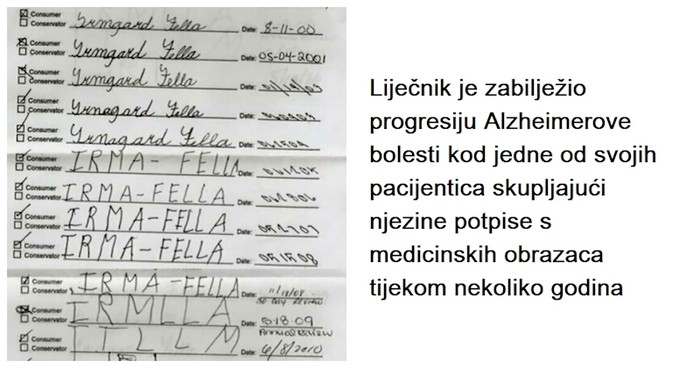 Consumer
Conservator
Yrmgard Fella Date: 8-11-00
Consumer
Conservator
Yrmgard Fella Date: 05-04-2001
Consumer
Conservator
Yrmgard Fella Date:
Consumer
Conservator
Yrnagard Fella Date:
Consumer
Conservator
Yrnagard Fella Date:
Consumer
Conservator
IRMA-FELLA Date:
Consumer
Conservator
IRMA-FELLA Date:
Consumer
Conservator
IRMA-FELLA Date:
Consumer
Conservator
IRMA-FELLA Date:
Consumer
Conservator
IRMA-FELLA Date: 11/18/08
Consumer
Conservator
IRMLLA Date: 5-18-09
Consumer
Conservator
ILLM Date: 6/8/2010
Liječnik je zabilježio
progresiju Alzheimerove
bolesti kod jedne od svojih
pacijentica skupljajući
njezine potpise s
medicinskih obrazaca
tijekom nekoliko godina